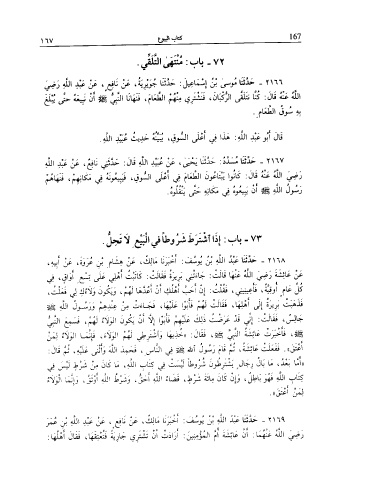 167 كتاب البيوع ١٦٧
٧٢ - باب: مُنْتَهَى التَّلَقِّي.
٢١٦٦ - حَدَّثَنَا مُوسَى بْنُ إِسْمَاعِيلَ: حَدَّثَنَا جُوَيْرِيَةُ، عَنْ نَافِعٍ، عَنْ عَبْدِ اللَّهِ رَضِيَ
اللَّهُ عَنْهُ قَالَ: كُنَّا نَتَلَقَّى الرُّكْبَانَ، فَنَشْتَرِي مِنْهُمُ الطَّعَامَ، فَنَهَانَا النَّبِيُّ ﷺ أَنْ نَبِيعَهُ حَتَّى يُبْلَغَ
بِهِ سُوقُ الطَّعَامِ.
قَالَ أَبُو عَبْدِ اللهِ: هَذَا فِي أَعْلَى السُّوقِ، يُبَيِّنُهُ حَدِيثُ عُبَيْدِ اللَّهِ.
٢١٦٧ - حَدَّثَنَا مُسَدَّدٌ: حَدَّثَنَا يَحْيَى، عَنْ عُبَيْدِ اللَّهِ قَالَ: حَدَّثَنِي نَافِعٌ، عَنْ عَبْدِ اللَّهِ
رَضِيَ اللَّهُ عَنْهُ قَالَ: كَانُوا يَبْتَاعُونَ الطَّعَامَ فِي أَعْلَى السُّوقِ، فَيَبِيعُونَهُ فِي مَكَانِهِمْ، فَنَهَاهُمْ
رَسُولُ اللَّهِ ﷺ أَنْ يَبِيعُوهُ فِي مَكَانِهِ حَتَّى يَنْقُلُوهُ.
٧٣ - باب: إِذَا اشْتَرَطَ شُرُوطاً فِي الْبَيْعِ لاَ تَحِلُّ.
٢١٦٨ - حَدَّثَنَا عَبْدُ اللَّهِ بْنُ يُوسُفَ: أَخْبَرَنَا مَالِكٌ، عَنْ هِشَامِ بْنِ عُرْوَةَ، عَنْ أَبِيهِ،
عَنْ عَائِشَةَ رَضِيَ اللَّهُ عَنْهَا قَالَتْ: جَاءَتْنِي بَرِيرَةُ فَقَالَتْ: كَاتَبْتُ أَهْلِي عَلَى تِسْعِ أَوَاقٍ، فِي
كُلِّ عَامٍ أُوقِيَّةٌ، فَأَعِينِينِي، فَقُلْتُ: إِنْ أَحَبَّ أَهْلُكِ أَنْ أَعُدَّهَا لَهُمْ، وَيَكُونَ وَلاَؤُكِ لِي فَعَلْتُ،
فَذَهَبَتْ بَرِيرَةُ إِلَى أَهْلِهَا، فَقَالَتْ لَهُمْ فَأَبَوْا عَلَيْهَا، فَجَاءَتْ مِنْ عِنْدِهِمْ وَرَسُولُ اللَّهِ ﷺ
جَالِسٌ، فَقَالَتْ: إِنِّي قَدْ عَرَضْتُ ذَلِكَ عَلَيْهِمْ فَأَبَوْا إِلاَّ أَنْ يَكُونَ الْوَلاَءُ لَهُمْ، فَسَمِعَ النَّبِيُّ
ﷺ، فَأَخْبَرَتْ عَائِشَةُ النَّبِيَّ ﷺ، فَقَالَ: «خُذِيهَا وَاشْتَرِطِي لَهُمُ الْوَلاَءَ، فَإِنَّمَا الْوَلاَءُ لِمَنْ
أَعْتَقَ». فَفَعَلَتْ عَائِشَةُ، ثُمَّ قَامَ رَسُولُ اللَّهِ ﷺ فِي النَّاسِ، فَحَمِدَ اللَّهَ وَأَثْنَى عَلَيْهِ، ثُمَّ قَالَ:
«أَمَّا بَعْدُ، مَا بَالُ رِجَالٍ يَشْتَرِطُونَ شُرُوطاً لَيْسَتْ فِي كِتَابِ اللَّهِ، مَا كَانَ مِنْ شَرْطٍ لَيْسَ فِي
كِتَابِ اللَّهِ فَهُوَ بَاطِلٌ، وَإِنْ كَانَ مِائَةَ شَرْطٍ، قَضَاءُ اللَّهِ أَحَقُّ، وَشَرْطُ اللَّهِ أَوْثَقُ، وَإِنَّمَا الْوَلاَءُ
لِمَنْ أَعْتَقَ».
٢١٦٩ - حَدَّثَنَا عَبْدُ اللَّهِ بْنُ يُوسُفَ: أَخْبَرَنَا مَالِكٌ، عَنْ نَافِعٍ، عَنْ عَبْدِ اللَّهِ بْنِ عُمَرَ
رَضِيَ اللَّهُ عَنْهُمَا: أَنَّ عَائِشَةَ أُمَّ الْمُؤْمِنِينَ: أَرَادَتْ أَنْ تَشْتَرِيَ جَارِيَةً فَتُعْتِقَهَا، فَقَالَ أَهْلُهَا: